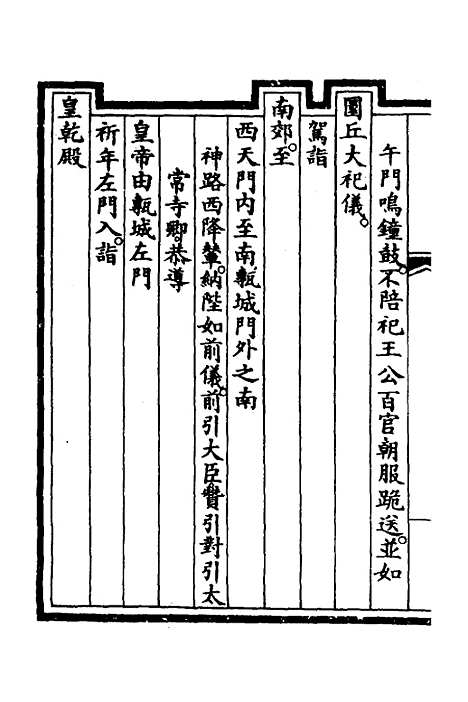 午門鳴鐘鼓。不陪祀王公百官朝服跪送。並如
圜丘大祀儀。
駕詣
南郊。至
西天門內至南甎城門外之南
神路西降輦。納陛如前儀。前引大臣贊引對引太
常寺卿。恭導
皇帝由甎城左門
祈年左門入。詣
皇乾殿